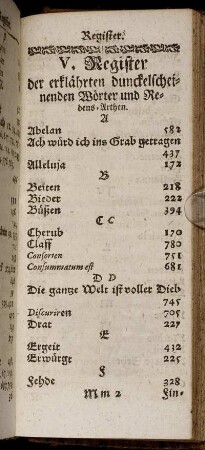 Register.
V. Register
der erklährten dunckelschei-
nenden Wörter und Re-
dens-Arthen.
A
Abelan 582
Ach würd ich ins Grab getragen
437
Alleluja 172
B
Beiten 218
Bieder 222
Büßen 394
C C
Cherub 170
Claff 780
Consorten 751
Consummatum est 681
D D
Die gantze Welt ist voller Dieb
745
Discuriren 705
Drat 227
E
Ergeit 432
Erwürgt 225
F
Fehde 328
M m 2 Fin-